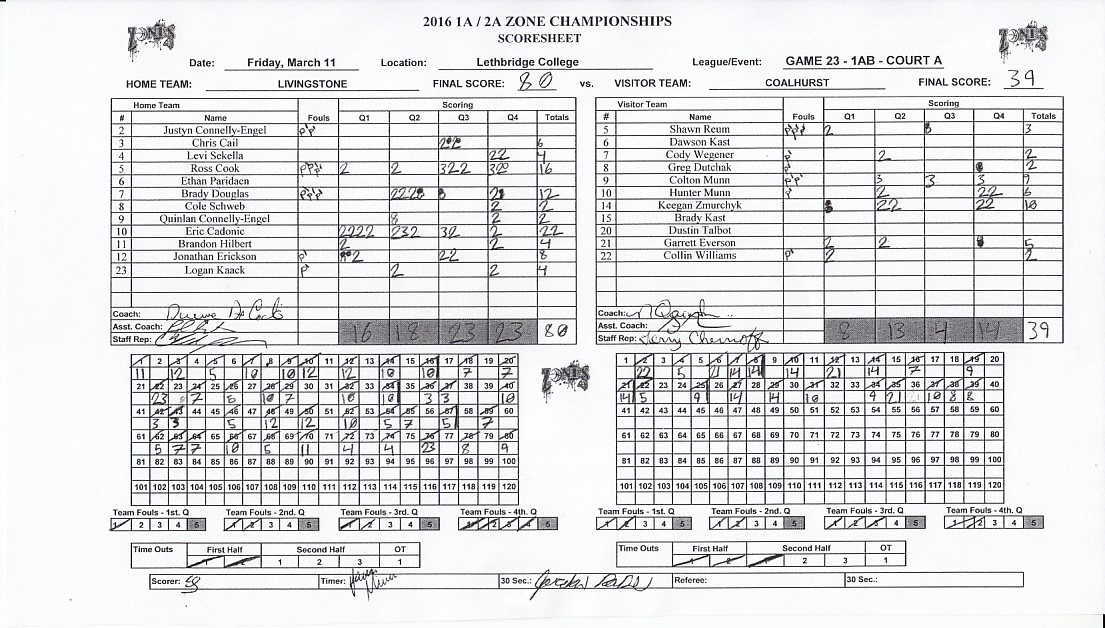 ZONES
2016 1A / 2A ZONE CHAMPIONSHIPS
ZONES
SCORESHEET
Date: Friday, March 11 Location: Lethbridge College League/Event: GAME 23 - 1AB - COURT A
HOME TEAM: LIVINGSTONE FINAL SCORE: 80 vs. VISITOR TEAM: COALHURST FINAL SCORE: 39
Home Team Scoring
# Name Fouls Q1 Q2 Q3 Q4 Totals
2 Justyn Connelly-Engel
3 Chris Cail 6
4 Levi Sekella 22 4
5 Ross Cook 2 2 322 16
6 Ethan Paridaen
7 Brady Douglas 12
8 Cole Schweb 2 2
9 Quinlan Connelly-Engel 2 2
10 Eric Cadonic 2222 232 32 2 22
11 Brandon Hilbert 2 2 4
12 Jonathan Erickson 2 22 8
23 Logan Kaack 2 2 4
Coach:
Asst. Coach:
Staff Rep:
16 18 23 23 80
Visitor Team Scoring
# Name Fouls Q1 Q2 Q3 Q4 Totals
5 Shawn Reum 2 3
6 Dawson Kast
7 Cody Wegener 2 2
8 Greg Dutchak 2
9 Colton Munn 3 3 3 9
10 Hunter Munn 2 22 6
14 Keegan Zmurchyk 22 22 10
15 Brady Kast
20 Dustin Talbot
21 Garrett Everson 2 2 5
22 Collin Williams 2 2
Coach:
Asst. Coach:
Staff Rep: Terry Chernoff
8 13 4 14 39
1 2 3 4 5 6 7 8 9 10 11 12 13 14 15 16 17 18 19 20
11 12 5 10 10 12 12 10 10 3 7 7
21 22 23 24 25 26 27 28 29 30 31 32 33 34 35 36 37 38 39 40
23 7 8 10 7 10 10 3 3 10
41 42 43 44 45 46 47 48 49 50 51 52 53 54 55 56 57 58 59 60
3 3 5 12 12 10 5 7 5 7
61 62 63 64 65 66 67 68 69 70 71 72 73 74 75 76 77 78 79 80
5 7 7 10 5 11 4 4 23 8 9
81 82 83 84 85 86 87 88 89 90 91 92 93 94 95 96 97 98 99 100
101 102 103 104 105 106 107 108 109 110 111 112 113 114 115 116 117 118 119 120
ZONES
1 2 3 4 5 6 7 8 9 10 11 12 13 14 15 16 17 18 19 20
22 5 21 14 14 14 21 14 7 9
21 22 23 24 25 26 27 28 29 30 31 32 33 34 35 36 37 38 39 40
14 5 9 14 14 10 9 21 21 10 8 8
41 42 43 44 45 46 47 48 49 50 51 52 53 54 55 56 57 58 59 60
61 62 63 64 65 66 67 68 69 70 71 72 73 74 75 76 77 78 79 80
81 82 83 84 85 86 87 88 89 90 91 92 93 94 95 96 97 98 99 100
101 102 103 104 105 106 107 108 109 110 111 112 113 114 115 116 117 118 119 120
Team Fouls - 1st. Q Team Fouls - 2nd. Q Team Fouls - 3rd. Q Team Fouls - 4th. Q
1 2 3 4 5 1 2 3 4 5 1 2 3 4 5 1 2 3 4 5
Team Fouls - 1st. Q Team Fouls - 2nd. Q Team Fouls - 3rd. Q Team Fouls - 4th. Q
1 2 3 4 5 1 2 3 4 5 1 2 3 4 5 1 2 3 4 5
Time Outs First Half Second Half OT
1 2 1 2 3 1
Time Outs First Half Second Half OT
1 2 1 2 3 1
Scorer: Timer: 30 Sec.: Referee: 30 Sec.: